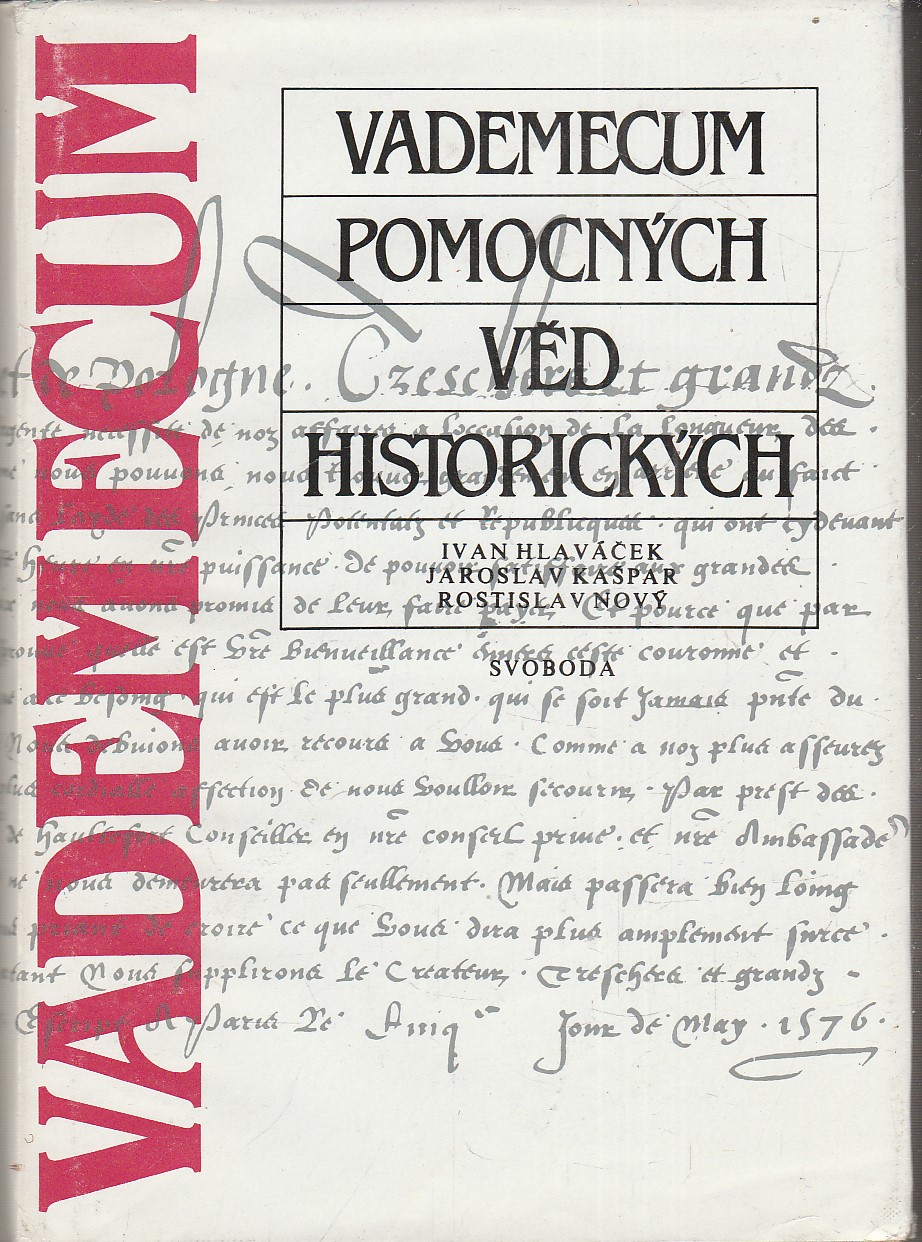 VADEMECUM
VADEMECUM
POMOCNÝCH
VĚD
HISTORICKÝCH
IVAN HLAVÁČEK
JAROSLAV KAŠPAR
ROSTISLAV NOVÝ
SVOBODA
de Pologne. et grandz.
de noz affaires a loccasion de la longueur des.
nous pouvons, nous
Princes Potentatz et Republiques. qui ont cydevant
puissance. De pouvoir aux grandes
promis de leur faire payer. Et pource que par
est vre bienveillance ceste couronne et.
qui est le plus grand. qui se soit Jamais pnte du.
avoir recours a vous. Comme a noz plus asseurez
affection de nous voulloir secourir. Par prest des.
Conseiller en nre conseil prive. et nre Ambassade
nous demeurera pas seullement. Mais passera bien loing
croire ce que vous dira plus amplement surce.
Nous supplirons le Createur. Treschers et grandz
Paris le Jour de May. 1576.